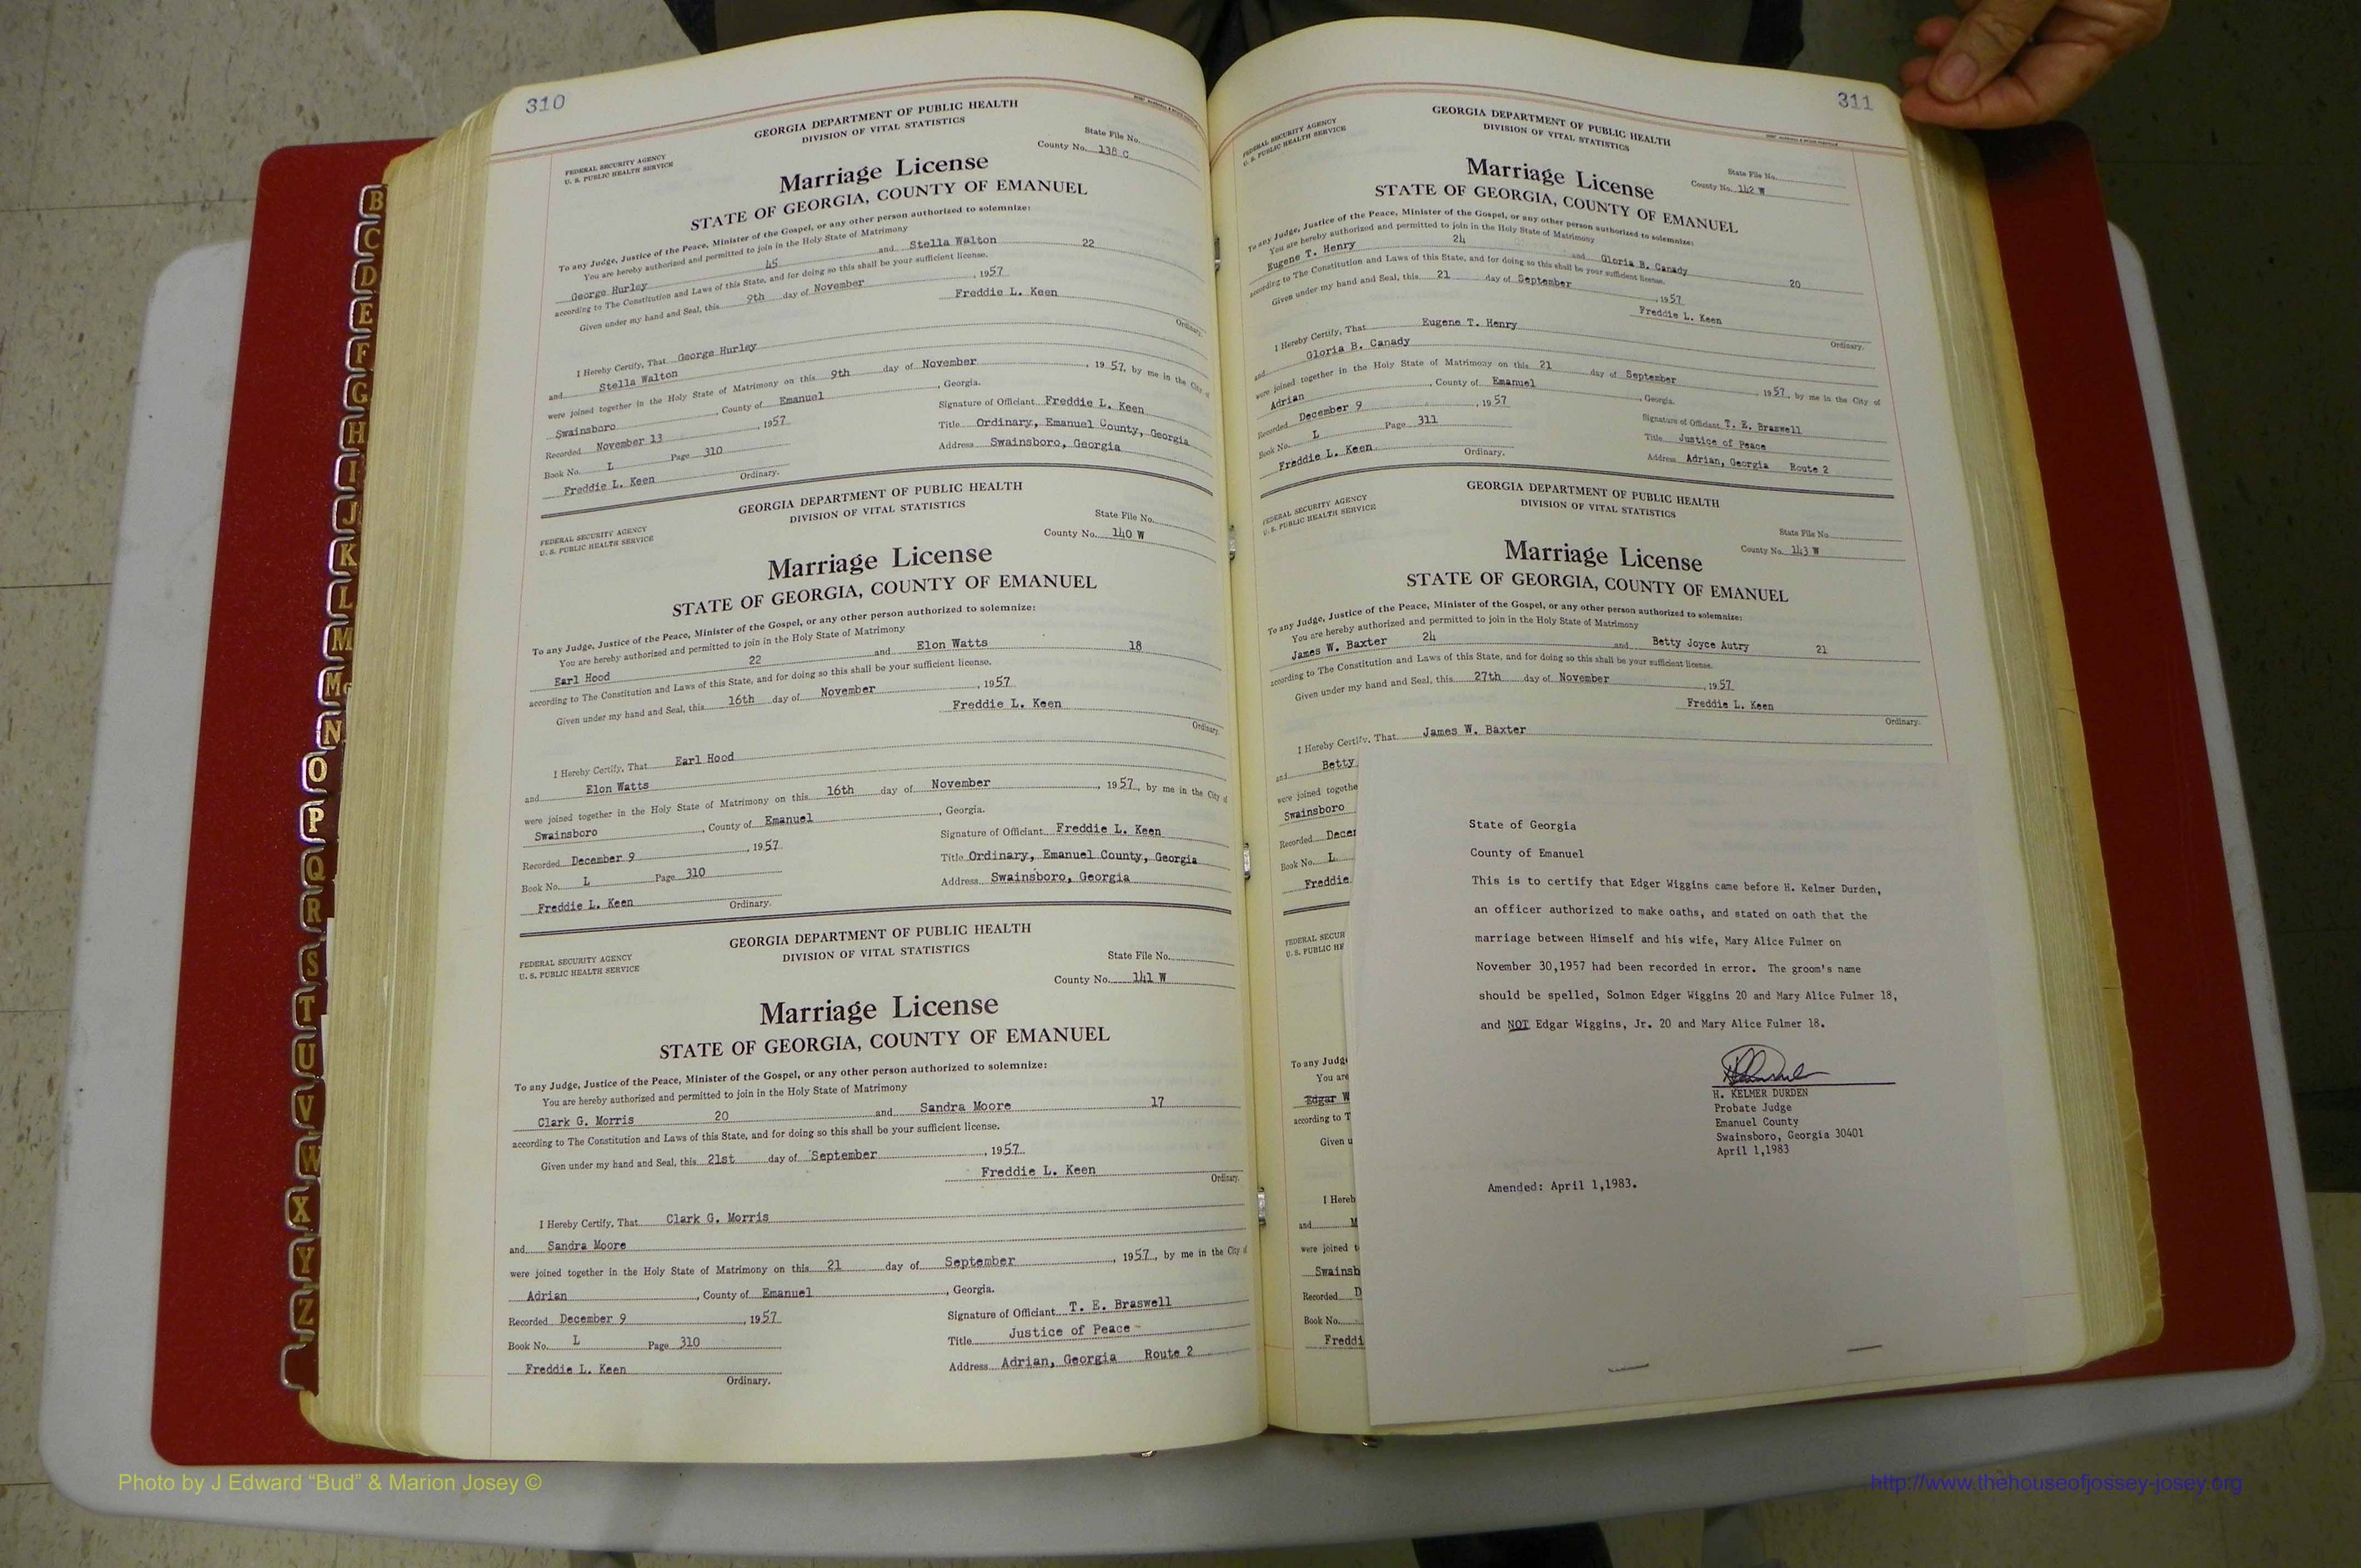 310
GEORGIA DEPARTMENT OF PUBLIC HEALTH
DIVISION OF VITAL STATISTICS
FEDERAL SECURITY AGENCY
U. S. PUBLIC HEALTH SERVICE
State File No.
County No. 138 C
Marriage License
STATE OF GEORGIA, COUNTY OF EMANUEL
To any Judge, Justice of the Peace, Minister of the Gospel, or any other person authorized to solemnize:
You are hereby authorized and permitted to join in the Holy State of Matrimony
George Hurley 45 and Stella Walton 22
according to The Constitution and Laws of this State, and for doing so this shall be your sufficient license.
Given under my hand and Seal, this 9th day of November, 1957
Freddie L. Keen
Ordinary.
I Hereby Certify, That George Hurley
and Stella Walton
were joined together in the Holy State of Matrimony on this 9th day of November, 1957, by me in the City of
Swainsboro, County of Emanuel, Georgia.
Recorded November 13, 1957
Book No. L Page 310
Freddie L. Keen Ordinary.
Signature of Officiant Freddie L. Keen
Title Ordinary, Emanuel County, Georgia
Address Swainsboro, Georgia
GEORGIA DEPARTMENT OF PUBLIC HEALTH
DIVISION OF VITAL STATISTICS
FEDERAL SECURITY AGENCY
U. S. PUBLIC HEALTH SERVICE
State File No.
County No. 140 W
Marriage License
STATE OF GEORGIA, COUNTY OF EMANUEL
To any Judge, Justice of the Peace, Minister of the Gospel, or any other person authorized to solemnize:
You are hereby authorized and permitted to join in the Holy State of Matrimony
Earl Hood 22 and Elon Watts 18
according to The Constitution and Laws of this State, and for doing so this shall be your sufficient license.
Given under my hand and Seal, this 16th day of November, 1957
Freddie L. Keen
Ordinary.
I Hereby Certify, That Earl Hood
and Elon Watts
were joined together in the Holy State of Matrimony on this 16th day of November, 1957, by me in the City of
Swainsboro, County of Emanuel, Georgia.
Recorded December 9, 1957
Book No. L Page 310
Freddie L. Keen Ordinary.
Signature of Officiant Freddie L. Keen
Title Ordinary, Emanuel County, Georgia
Address Swainsboro, Georgia
GEORGIA DEPARTMENT OF PUBLIC HEALTH
DIVISION OF VITAL STATISTICS
FEDERAL SECURITY AGENCY
U. S. PUBLIC HEALTH SERVICE
State File No.
County No. 141 W
Marriage License
STATE OF GEORGIA, COUNTY OF EMANUEL
To any Judge, Justice of the Peace, Minister of the Gospel, or any other person authorized to solemnize:
You are hereby authorized and permitted to join in the Holy State of Matrimony
Clark G. Morris 20 and Sandra Moore 17
according to The Constitution and Laws of this State, and for doing so this shall be your sufficient license.
Given under my hand and Seal, this 21st day of September, 1957
Freddie L. Keen
Ordinary.
I Hereby Certify, That Clark G. Morris
and Sandra Moore
were joined together in the Holy State of Matrimony on this 21 day of September, 1957, by me in the City of
Adrian, County of Emanuel, Georgia.
Recorded December 9, 1957
Book No. L Page 310
Freddie L. Keen
Ordinary.
Signature of Officiant T. E. Braswell
Title Justice of Peace
Address Adrian, Georgia Route 2
311
GEORGIA DEPARTMENT OF PUBLIC HEALTH
DIVISION OF VITAL STATISTICS
FEDERAL SECURITY AGENCY
U. S. PUBLIC HEALTH SERVICE
State File No.
County No. 142 W
Marriage License
STATE OF GEORGIA, COUNTY OF EMANUEL
To any Judge, Justice of the Peace, Minister of the Gospel, or any other person authorized to solemnize:
You are hereby authorized and permitted to join in the Holy State of Matrimony
Eugene T. Henry 24 and Gloria B. Canady 20
according to The Constitution and Laws of this State, and for doing so this shall be your sufficient license.
Given under my hand and Seal, this 21 day of September, 1957
Freddie L. Keen
Ordinary.
I Hereby Certify, That Eugene T. Henry
and Gloria B. Canady
were joined together in the Holy State of Matrimony on this 21 day of September, 1957, by me in the City of
Adrian, County of Emanuel, Georgia.
Recorded December 9, 1957
Book No. L Page 311
Freddie L. Keen Ordinary.
Signature of Officiant T. E. Braswell
Title Justice of Peace
Address Adrian, Georgia Route 2
GEORGIA DEPARTMENT OF PUBLIC HEALTH
DIVISION OF VITAL STATISTICS
FEDERAL SECURITY AGENCY
U. S. PUBLIC HEALTH SERVICE
State File No.
County No. 143 W
Marriage License
STATE OF GEORGIA, COUNTY OF EMANUEL
To any Judge, Justice of the Peace, Minister of the Gospel, or any other person authorized to solemnize:
You are hereby authorized and permitted to join in the Holy State of Matrimony
James W. Baxter 24 and Betty Joyce Autry 21
according to The Constitution and Laws of this State, and for doing so this shall be your sufficient license.
Given under my hand and Seal, this 27th day of November, 1957
Freddie L. Keen
Ordinary.
I Hereby Certify, That James W. Baxter
and Betty
were joined togethe
Swainsboro
Recorded Decer
Book No. L
Freddie
FEDERAL SECUR
U. S. PUBLIC HE
To any Judge
You are
Edgar W
according to T
Given u
I Hereb
and M
were joined t
Swainsb
Recorded D
Book No.
Freddi
State of Georgia
County of Emanuel
This is to certify that Edger Wiggins came before H. Kelmer Durden,
an officer authorized to make oaths, and stated on oath that the
marriage between Himself and his wife, Mary Alice Fulmer on
November 30,1957 had been recorded in error. The groom's name
should be spelled, Solmon Edger Wiggins 20 and Mary Alice Fulmer 18,
and NOT Edgar Wiggins, Jr. 20 and Mary Alice Fulmer 18.
H. KELMER DURDEN
Probate Judge
Emanuel County
Swainsboro, Georgia 30401
April 1,1983
Amended: April 1,1983.
B
C
D
E
F
G
H
I
J
K
L
M
Mc
N
O
P
Q
R
S
T
U
V
W
X
Y
Z
Photo by J Edward “Bud” & Marion Josey ©
http://www.thehouseofjossey-josey.org